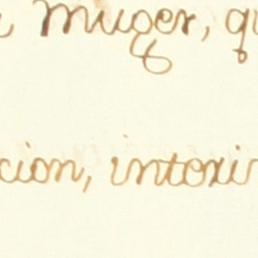 muger, qu
cion, intoxi